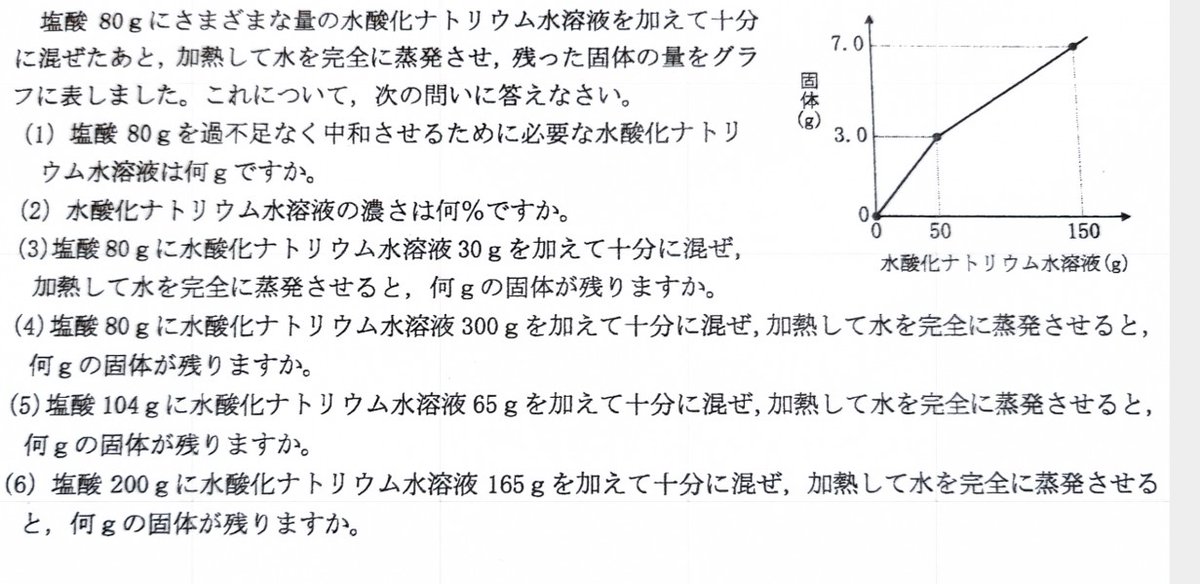 塩酸 80gにさまざまな量の水酸化ナトリウム水溶液を加えて十分
に混ぜたあと，加熱して水を完全に蒸発させ，残った固体の量をグラ
フに表しました。これについて，次の問いに答えなさい。
(1) 塩酸 80gを過不足なく中和させるために必要な水酸化ナトリ
ウム水溶液は何gですか。
(2) 水酸化ナトリウム水溶液の濃さは何%ですか。
(3)塩酸80gに水酸化ナトリウム水溶液30gを加えて十分に混ぜ，
加熱して水を完全に蒸発させると，何gの固体が残りますか。
(4)塩酸80gに水酸化ナトリウム水溶液300gを加えて十分に混ぜ,加熱して水を完全に蒸発させると，
何gの固体が残りますか。
(5)塩酸104gに水酸化ナトリウム水溶液65gを加えて十分に混ぜ,加熱して水を完全に蒸発させると，
何gの固体が残りますか。
(6) 塩酸 200gに水酸化ナトリウム水溶液 165gを加えて十分に混ぜ，加熱して水を完全に蒸発させる
と，何gの固体が残りますか。
固体(g)
7.0
3.0
0
0 50 150
水酸化ナトリウム水溶液(g)